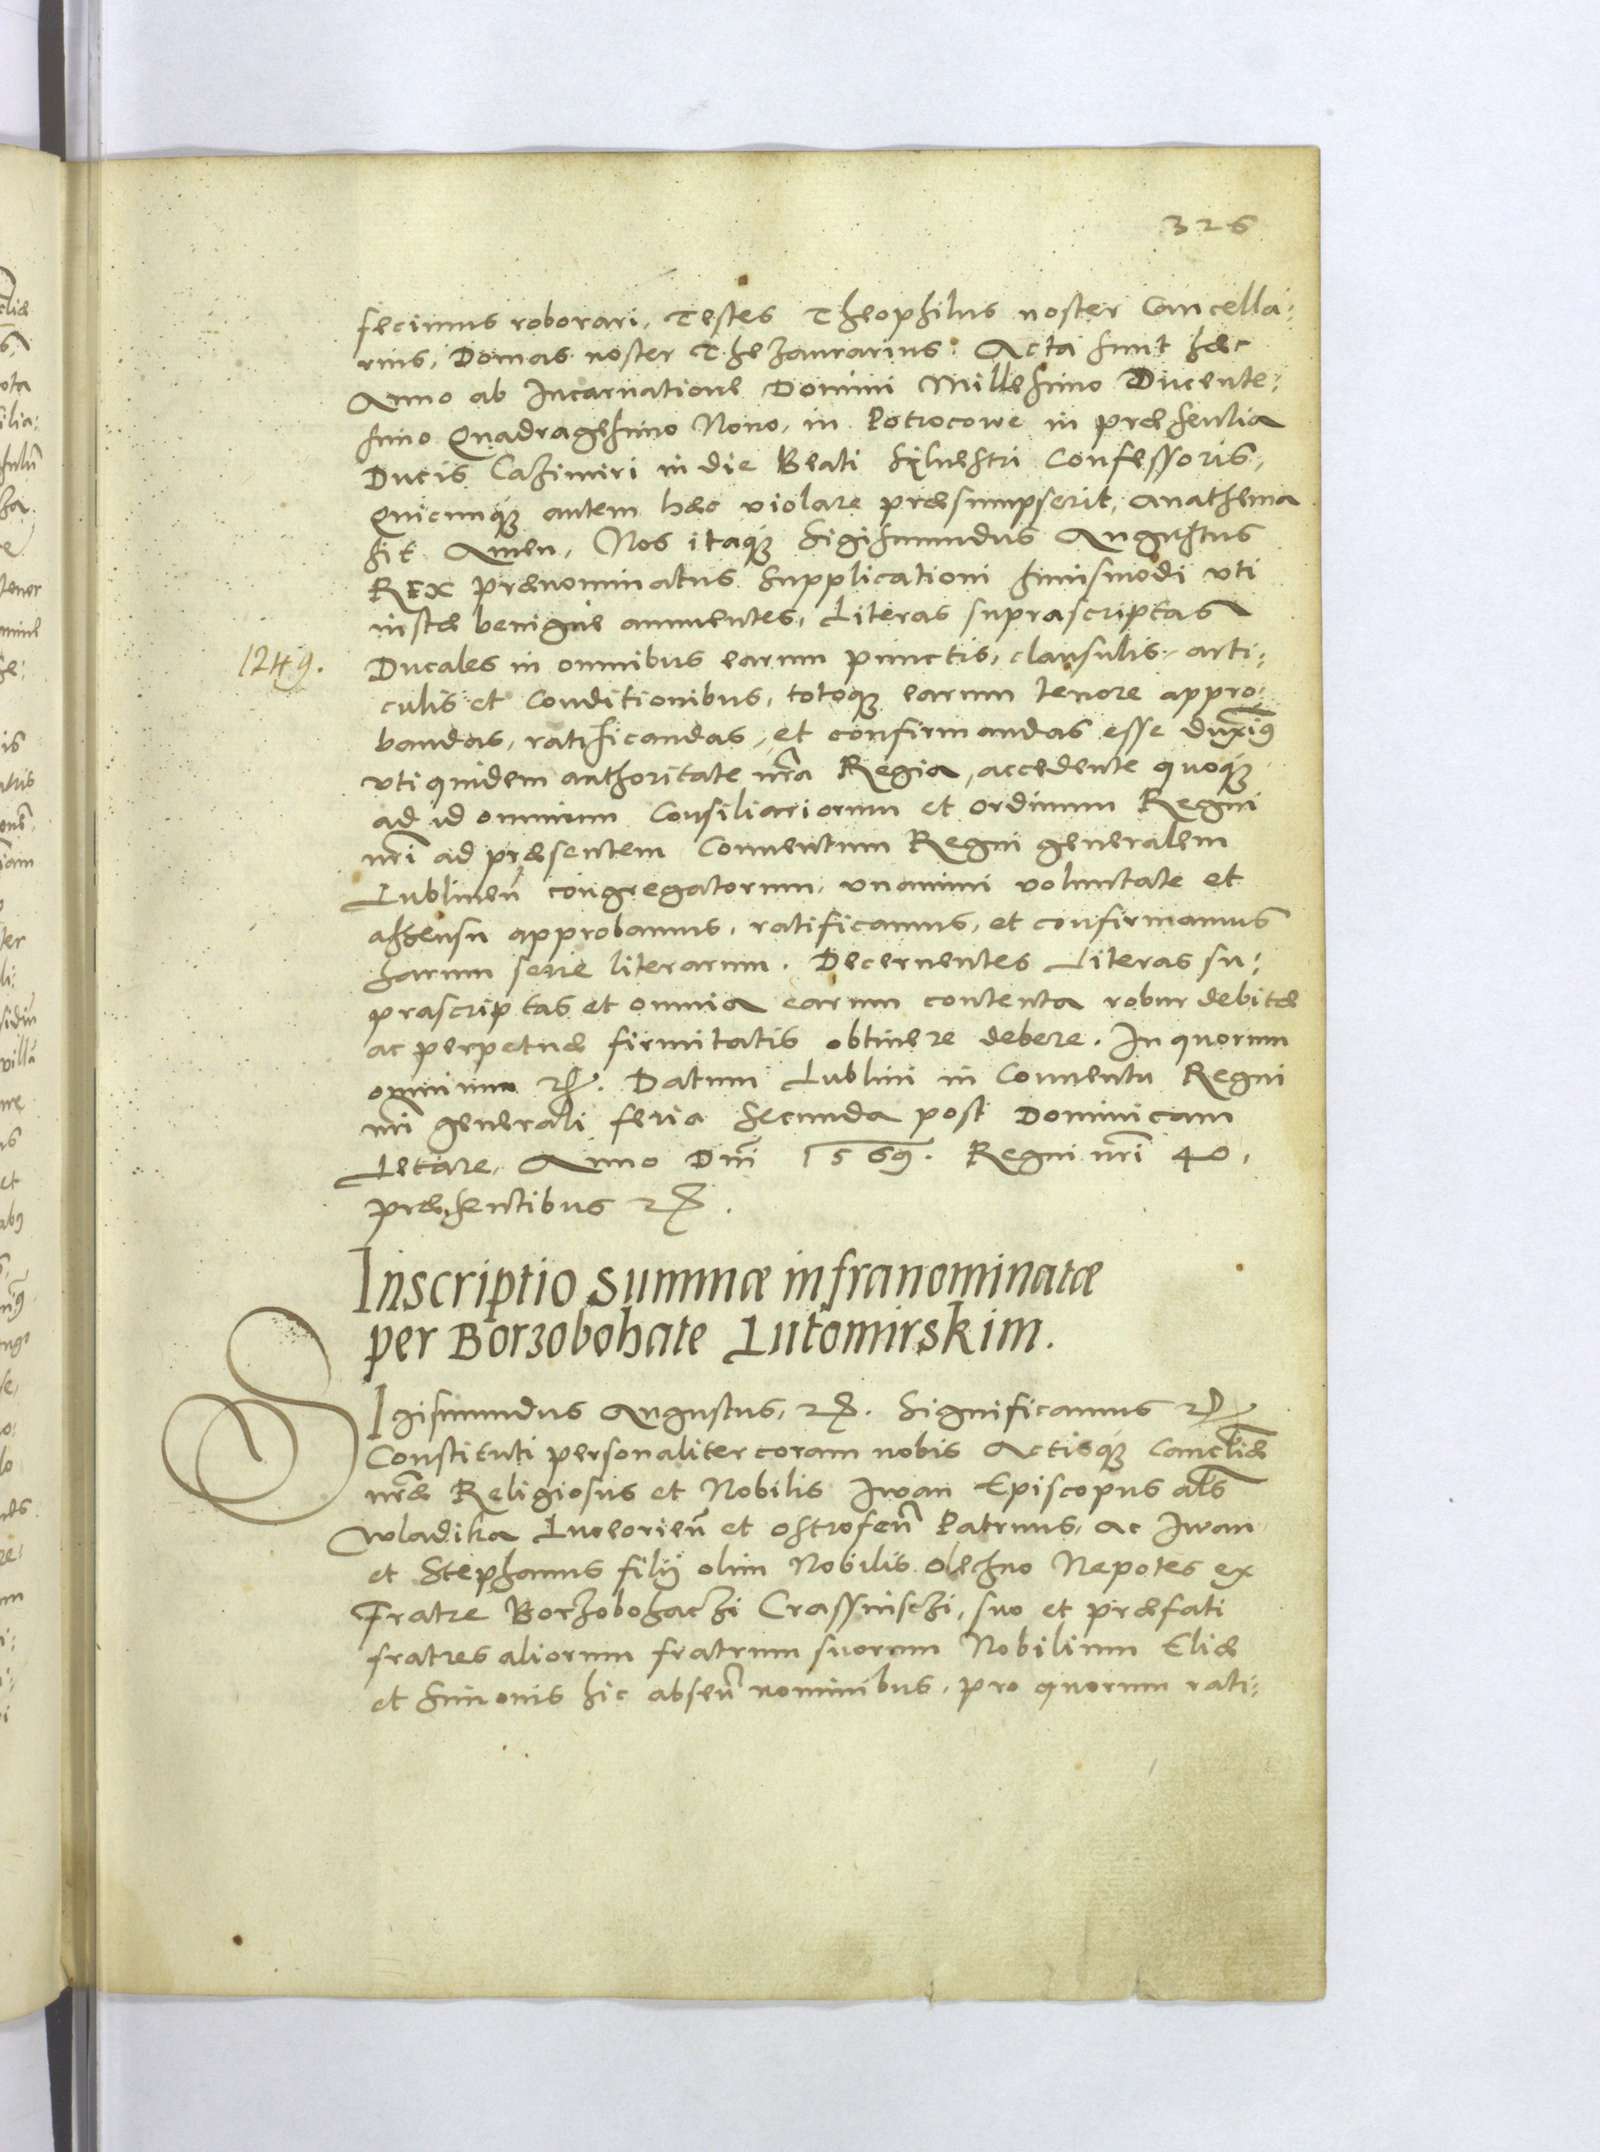 326
fecimus roborari, Testes Theophilus noster Cancella:
rius, Domas noster Thezaurarius. Acta sunt hæc
Anno ab Incarnatione Domini Millesimo Ducente:
simo Quadragesimo Nono, in Potrocowe in præsentia
Ducis Cazimiri in die Beati Sÿluestri Confessoris,
Quicunqꝫ autem hæc violare præsumpserit, Anathema
sit Amen, Nos itaqꝫ Sigismundus Augustus
REX prænominatus supplicationi huiusmodi vti
iustæ benigne annuentes, Literas suprascriptas
1249.
Ducales in omnibus earum punctis, clausulis, arti:
culis et Conditionibus, totoqꝫ earum tenore appro:
bandas, ratificandas, et confirmandas esse duxim9
vti quidem authoritate nr̃a Regia, accedente quoqꝫ
ad id omnium Consiliariorum et ordinum Regni
nr̃i ad præsentem Conuentum Regni generalem
Lublineñ congregatorum, vnanimi voluntate et
assensu approbamus, ratificamus, et confirmamus
harum serie literarum. Decernentes Literas su:
prascriptas et omnia earum contenta robur debitæ
ac perpetuæ firmitatis obtinere debere. In quorum
omnium etc. Datum Lublini in Conuentu Regni
nr̃i generali feria secunda post Dominicam
Letare, Anno Dnĩ 1569. Regni nr̃i 40,
præsentibus etc.
Inscriptio summæ infranominatæ
per Borzobohate Lutomirskim.
SIgismundus Augustus, etc. Significamus etc.
Constituti personaliter coram nobis Actisqꝫ Canclr̃iæ
nr̃æ Religiosus et Nobilis Iwan Episcopus al̃s
Wladika Luceorieñ et ostroseñ Patruus, ac Iwan
et Stephanus filÿ olim Nobilis olechno Nepotes ex
Fratre Borzobohaczi Crassnisczi, suo et præfati
fratres aliorum fratrum suorum Nobilium Eliæ
et Simonis hic abseñ nominibus, pro quorum rati: